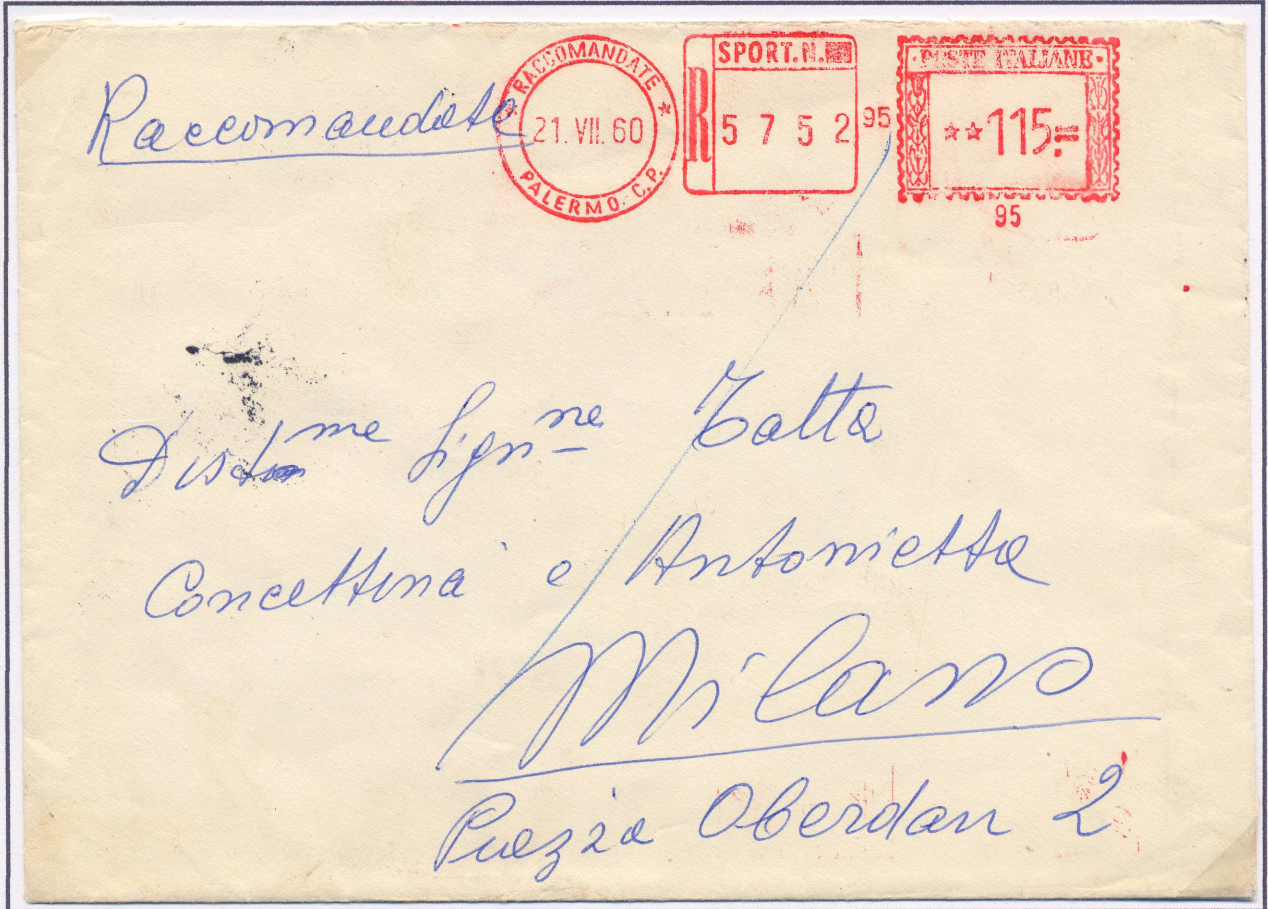 Raccomandata
* RACCOMANDATE *
21. VII. 60
PALERMO. C. P.
SPORT. N.
R 5 7 5 2
95
POSTE ITALIANE
**115=
95
Dist.me Sign.ne
Concettina e Antonietta
Milano
Piazza Oberdan 2